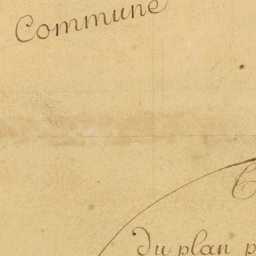 Commune
du plan